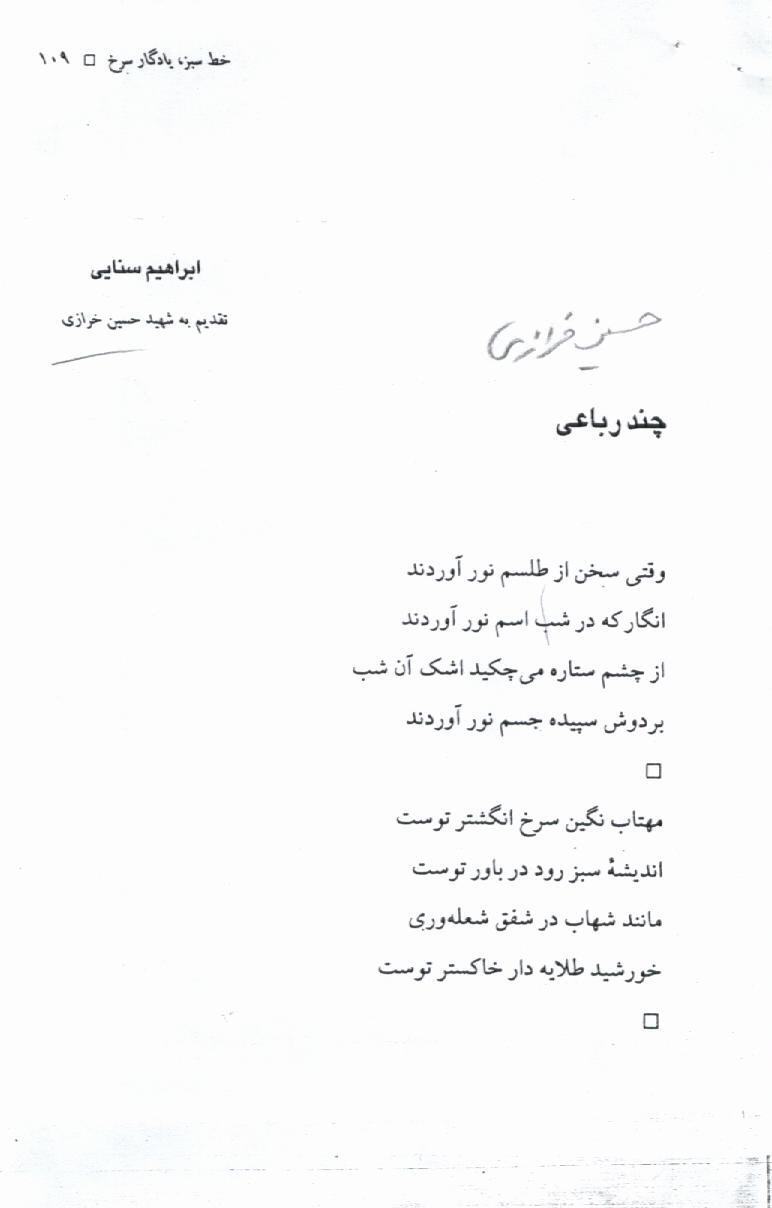 خط سبز، یادگار سرخ □ ۱۰۹
ابراهیم سنایی
تقدیم به شهید حسین خرازی
حسین خرازی
چند رباعی
وقتی سخن از طلسم نور آوردند
انگار که در شب اسم نور آوردند
از چشم ستاره می‌چکید اشک آن شب
بر دوش سپیده جسم نور آوردند
□
مهتاب نگین سرخ انگشتر توست
اندیشهٔ سبز رود در باور توست
مانند شهاب در شفق شعله‌وری
خورشید طلایه دار خاکستر توست
□